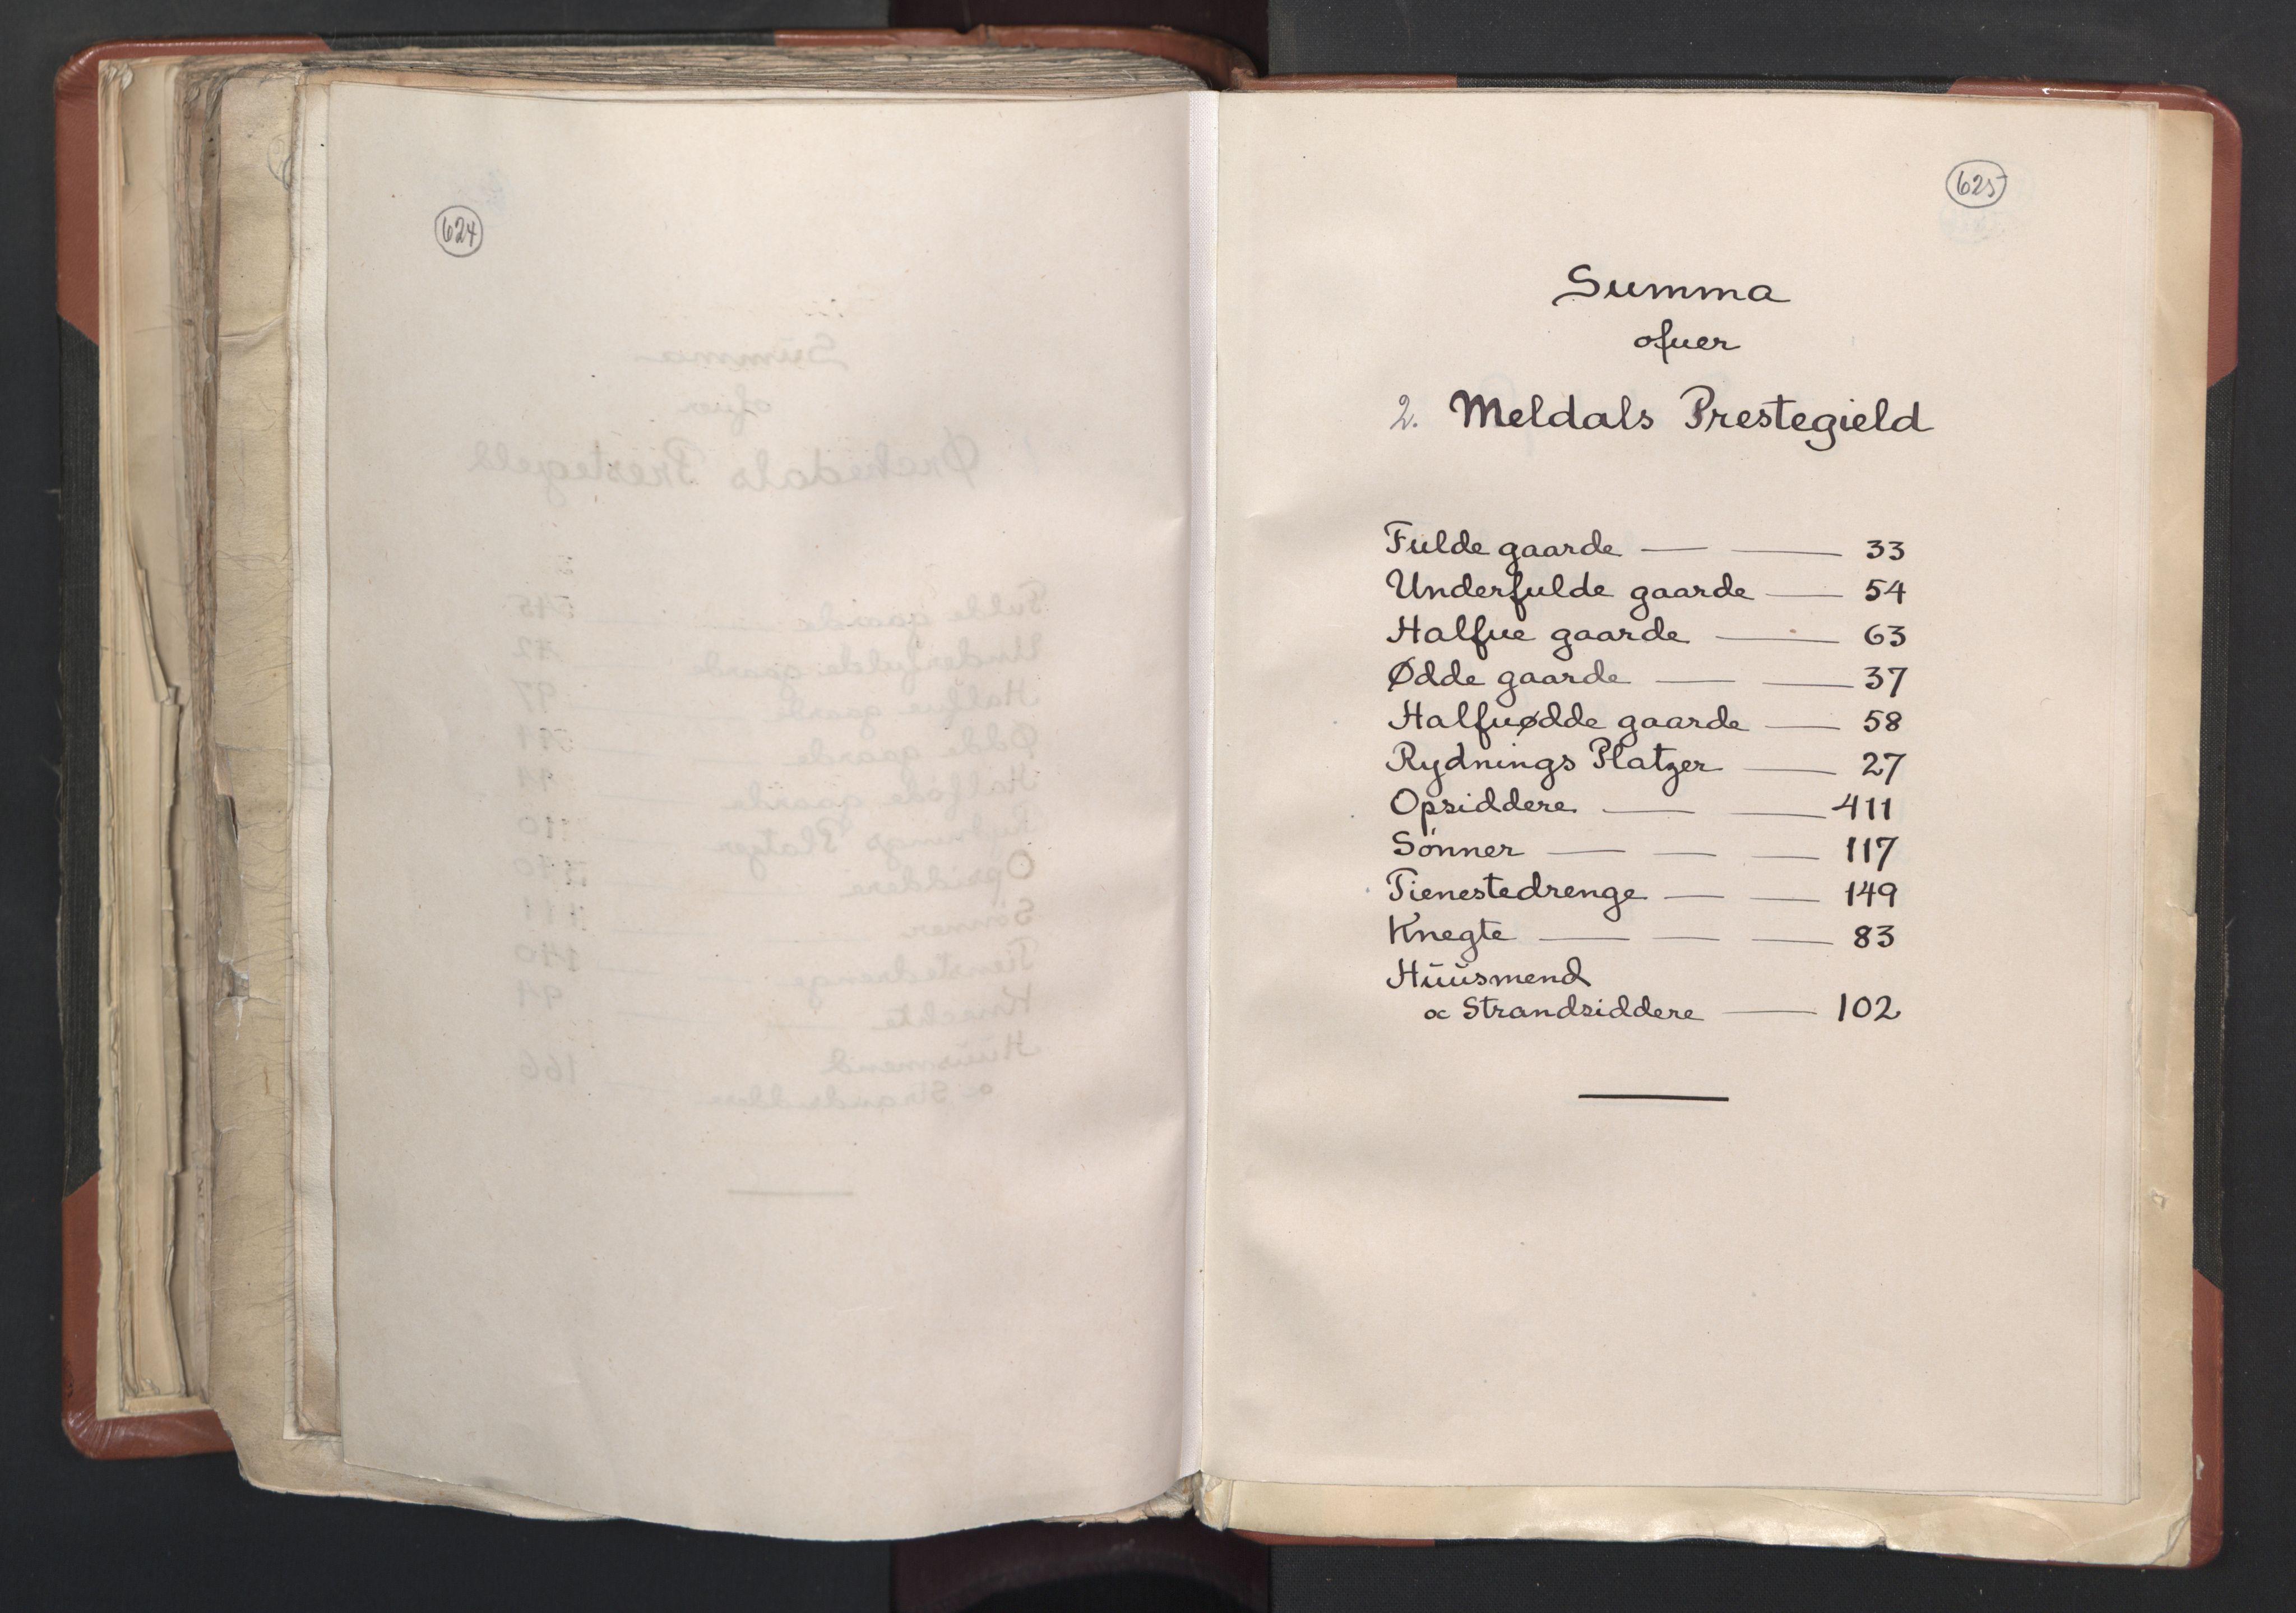 624
625
Summa
ofuer
2. Meldals Prestegield
Fulde gaarde — — 33
Underfulde gaarde — 54
Halfue gaarde — 63
Ødde gaarde — — 37
Halfuødde gaarde — 58
Rydnings Platzer — 27
Opsiddere — — 411
Sönner — — — 117
Tienestedrenge — — 149
Knegte — — — 83
Huusmend
oc Strandsiddere — 102